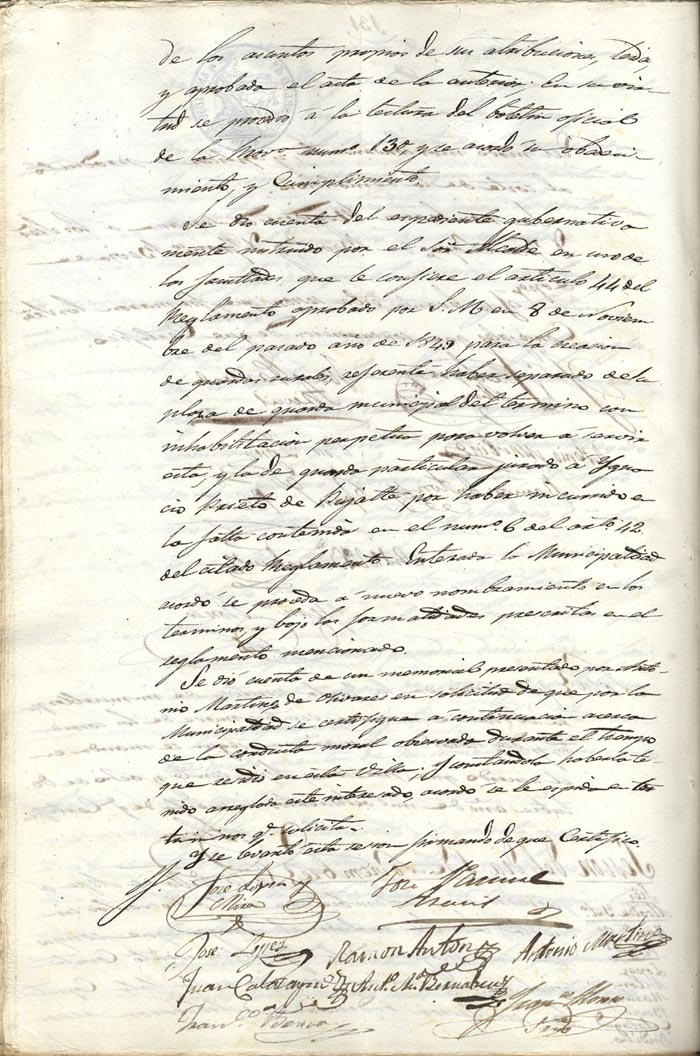 de los asuntos propios de sus atribuciones, leida
y aprobada el acta de la anterior, En su vir-
tud se procedió á la lectura del boletin oficial
de la Prov.ª num.º 130, y se acordó su obedeci-
miento, y Cumplimiento.
Se dio cuenta del expediente gubernativa
mente instruido por el Señor Alcalde en uso de
las facultades que le confiere el articulo 44 del
Reglamento aprobado por S.M. en 8 de Noviem
bre del pasado año de 1849 para la creacion
de guardas rurales, referente haber separado de la
plaza de guarda municipal del termino con
inhabilitacion perpetua para volver á servir
esta, y la de guarda particular jurado á Ygna
cio Prieto de por haber incurrido en
la falta contenida en el num.º 6 del art.º 42
del citado Reglamento. Enterada la Municipalidad
acordó se proceda á nuevo nombramiento en los
terminos y bajo las formalidades prescritas en el
reglamento mencionado.
Se dio cuenta de un memorial presentado por Anto-
nio Martinez de Olivares en solicitud de que por la
Municipalidad se certifique á continuacion acerca
de la conducta moral observada durante el tiempo
que residió en esta Villa; Y constandola haberla te-
nido arreglada este interesado, acordó se le espida en los
terminos q.e solicita.
Y se levantó esta sesion firmando de que Certifico.
José Lopez
Mira
José Manuel
José Lopez
Ramon Anton
Antonio Martinez
Juan Calatayud
Ant.º M.ª Bernabeu
Fran.co
Fran.co Alonso